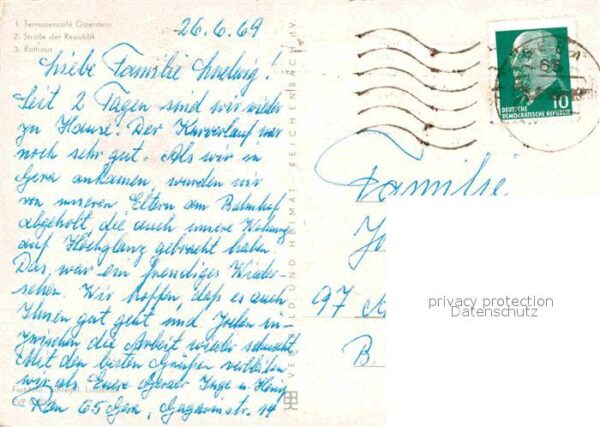 1. Terrassencafé Osterstein
2. Straße der Republik
3. Rathaus
26.6.69
Liebe Familie
Seit 2 Tagen sind wir wieder
zu Hause! Der Kurverlauf war
noch sehr gut. Als wir in
Gera ankamen, wurden wir
von unseren Eltern am Bahnhof
abgeholt, die auch unsere Wohnung
auf Hochglanz gebracht haben.
Das war ein freudiges Wieder-
sehen. Wir hoffen, daß es auch
Ihnen gut geht und in-
zwischen die Arbeit wieder schmeckt.
Mit den besten Grüßen verbleiben
wir als Eure Geraer Inge u. Heinz
65 Gera, Gagarinstr. 14
VERLAG BILD UND HEIMAT REICHENBACH I.V.
GERA
10
DEUTSCHE
DEMOKRATISCHE REPUBLIK
Familie
97
B.
privacy protection
Datenschutz